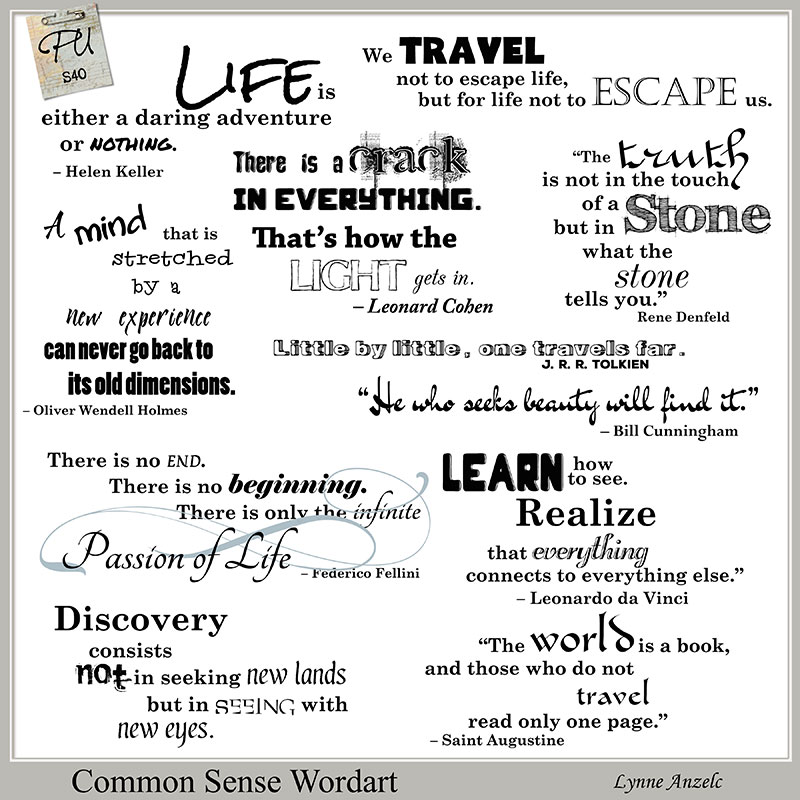 PU
S40
LIFE is
either a daring adventure
or NOTHING.
– Helen Keller
We TRAVEL
not to escape life,
but for life not to ESCAPE us.
There is a crack
IN EVERYTHING.
That's how the
LIGHT gets in.
– Leonard Cohen
“The truth
is not in the touch
of a Stone
but in
what the
stone
tells you.”
Rene Denfeld
A mind that is
stretched
by a
new experience
can never go back to
its old dimensions.
– Oliver Wendell Holmes
Little by little, one travels far.
J. R. R. TOLKIEN
“He who seeks beauty will find it.”
– Bill Cunningham
There is no END.
There is no beginning.
There is only the infinite
Passion of Life
– Federico Fellini
LEARN how
to see.
Realize
that everything
connects to everything else.”
– Leonardo da Vinci
Discovery
consists
not in seeking new lands
but in SEEING with
new eyes.
“The world is a book,
and those who do not
travel
read only one page.”
– Saint Augustine
Common Sense Wordart
Lynne Anzelc